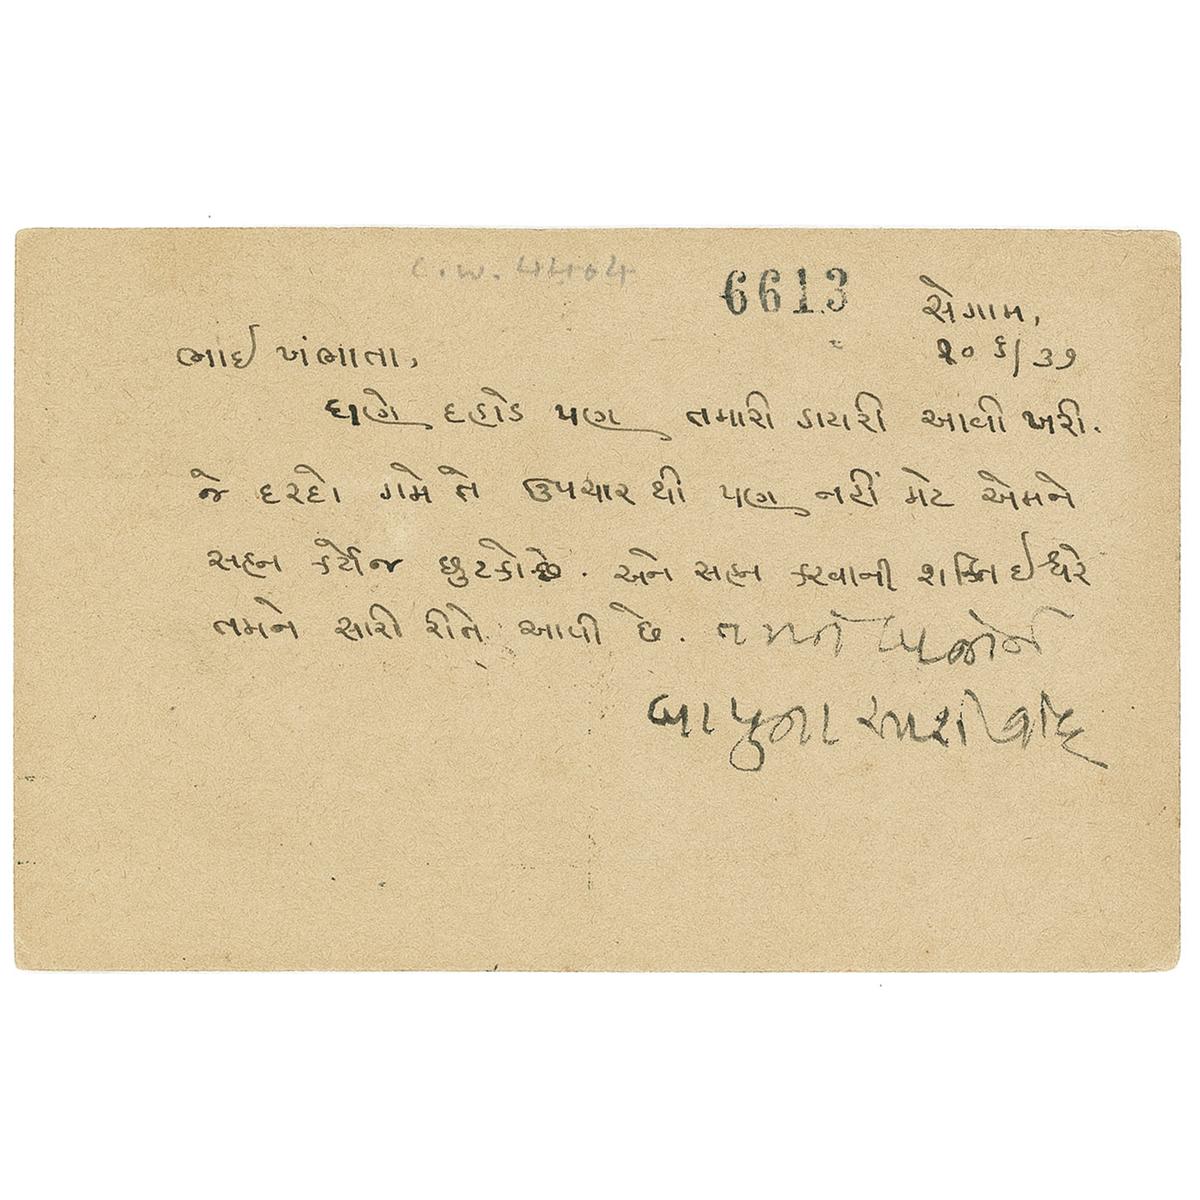 C.W. 4404
6613
સેગામ,
૨૦ ૬/૩૭
ભાઈ ખંભાતા,
ઘણે દહાડે પણ તમારી ડાયરી આવી ખરી.
જે દરદો ગમે તે ઉપચાર થી પણ નહીં મટે એમને
સહન કર્યેજ છુટકો છે. અને સહન કરવાની શક્તિ ઈશ્વરે
તમને સારી રીતે આપી છે. તમને બંનેને
બાપુના આશીર્વાદ